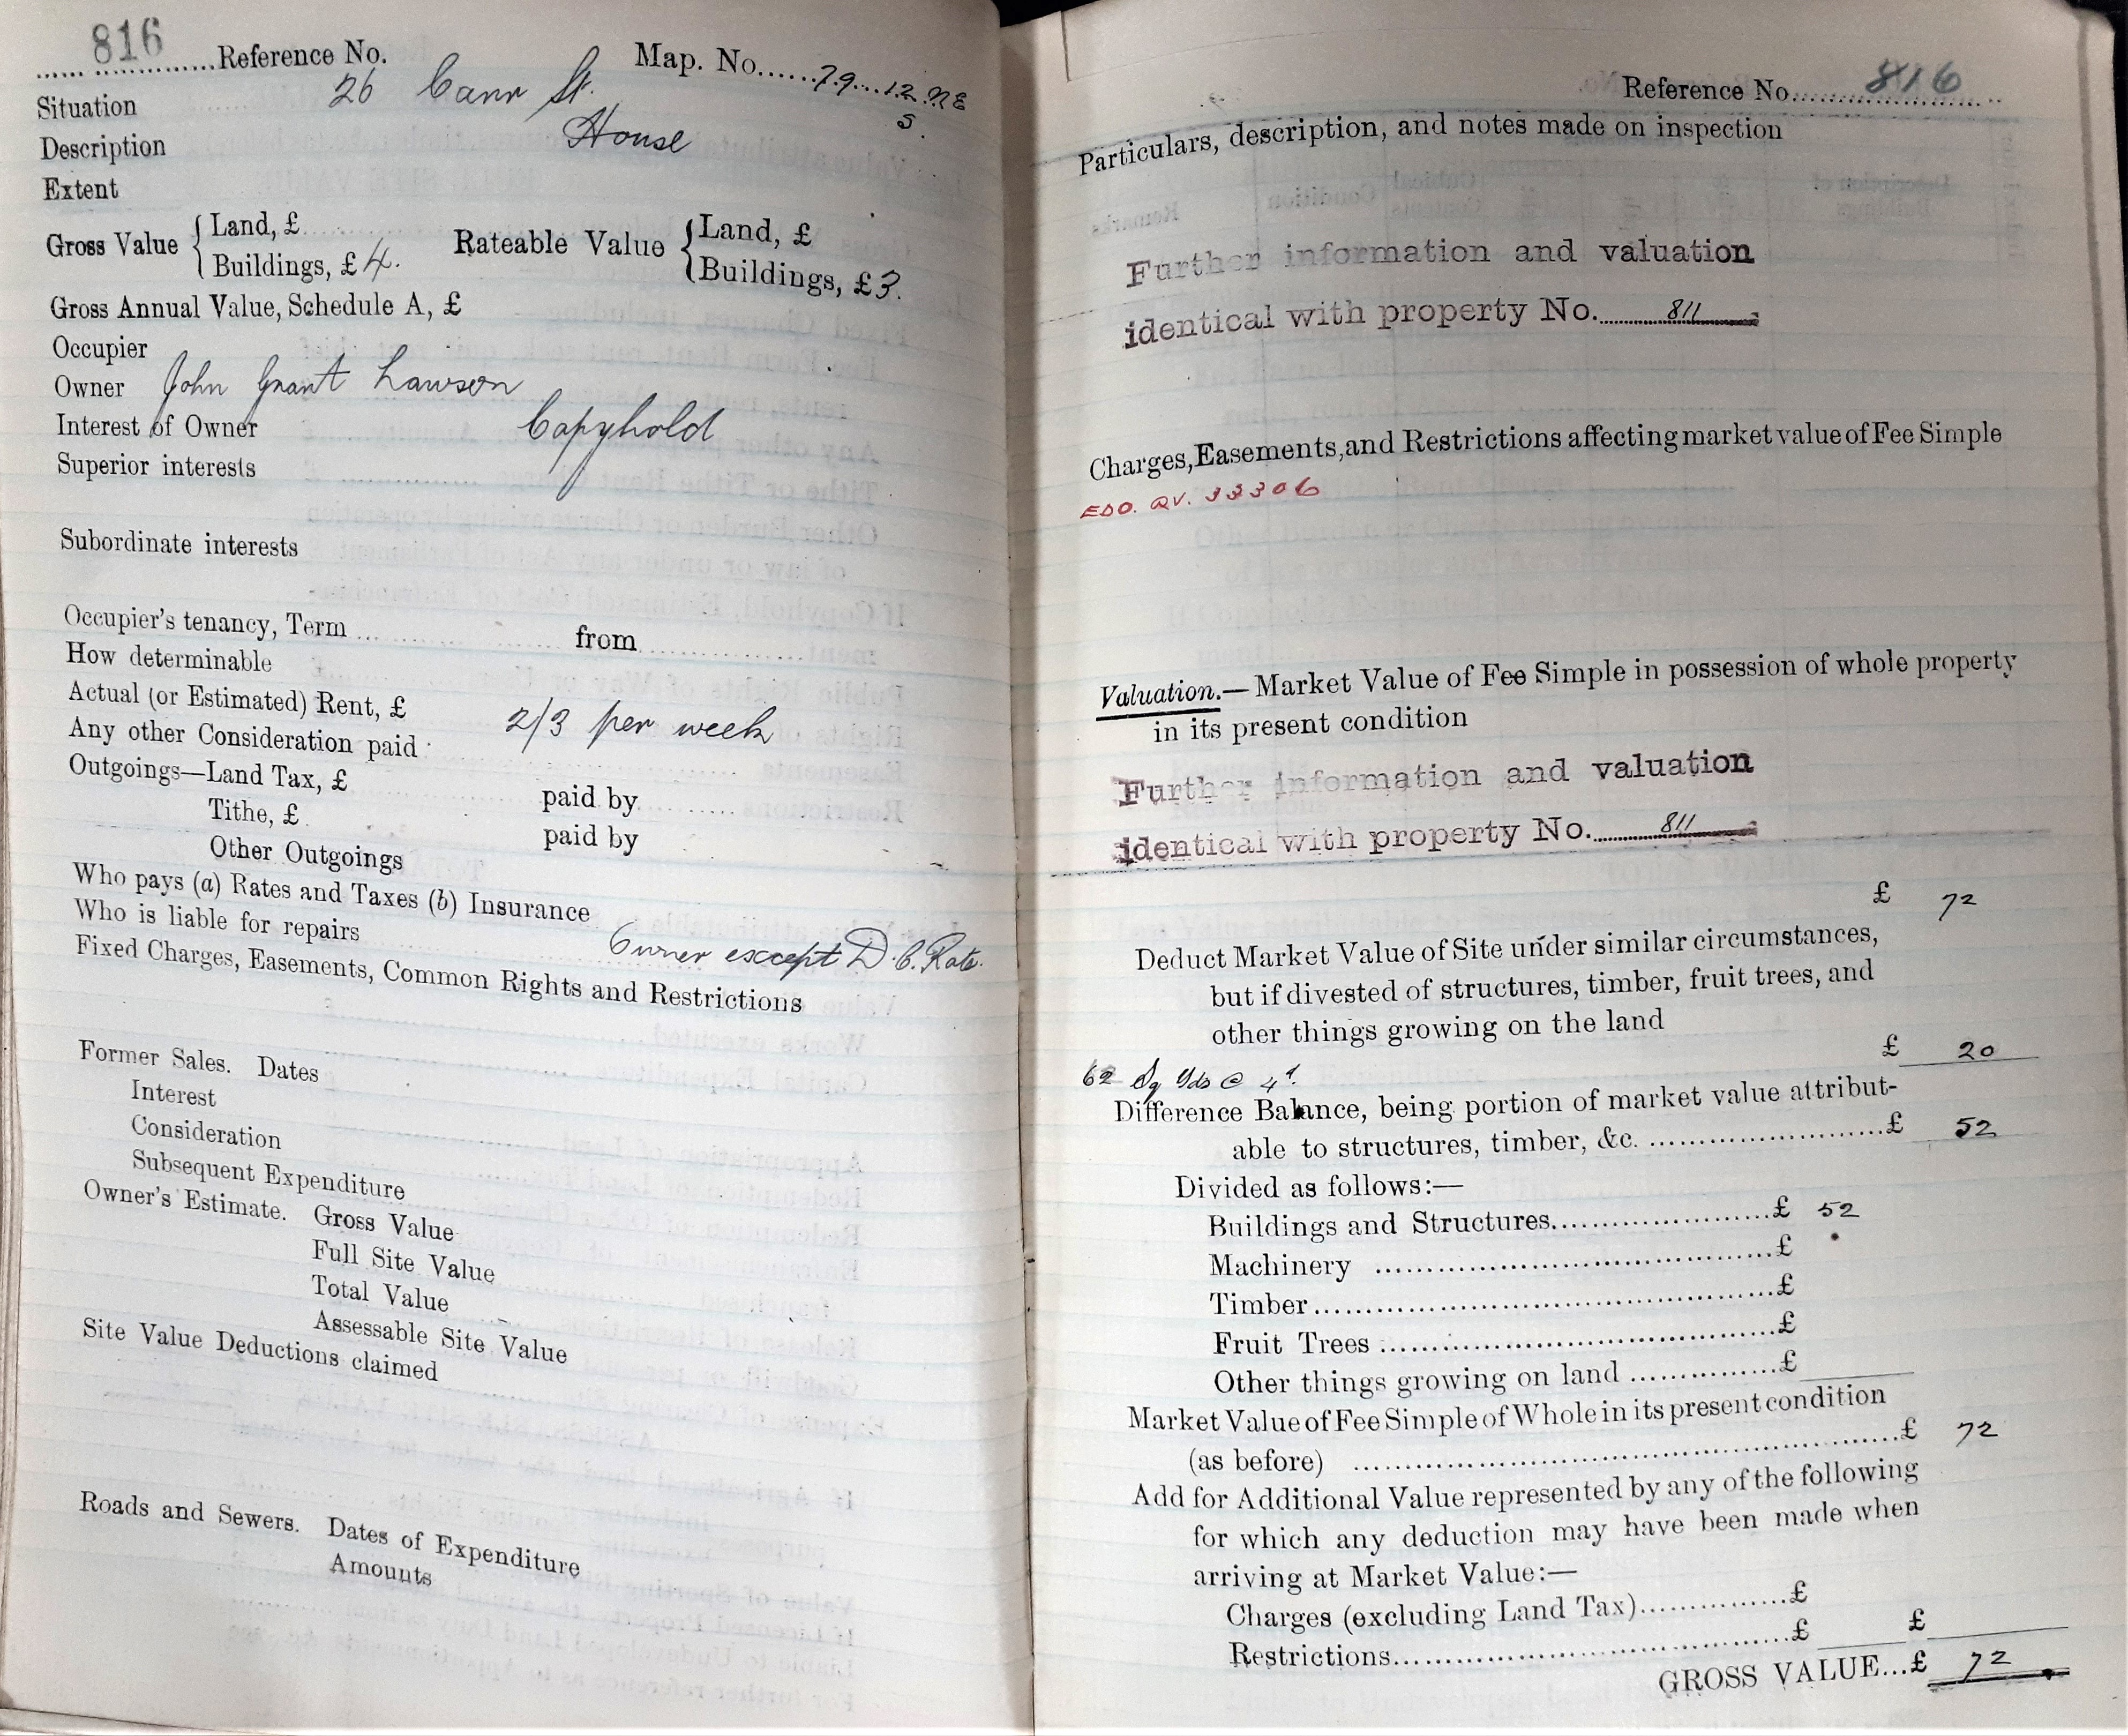 816 Reference No. Map. No. 79 12 NE
S.
Situation 26 Carr St.
Description House
Extent
Gross Value { Land, £ Rateable Value { Land, £
Buildings, £ 4. Buildings, £ 3.
Gross Annual Value, Schedule A, £
Occupier
Owner John Grant Lawson
Interest of Owner Copyhold
Superior interests
Subordinate interests
Occupier's tenancy, Term from
How determinable
Actual (or Estimated) Rent, £ 2/3 per week
Any other Consideration paid
Outgoings—Land Tax, £ paid by
Tithe, £ paid by
Other Outgoings
Who pays (a) Rates and Taxes (b) Insurance
Who is liable for repairs Owner except D.C. Rate.
Fixed Charges, Easements, Common Rights and Restrictions
Former Sales. Dates
Interest
Consideration
Subsequent Expenditure
Owner's Estimate. Gross Value
Full Site Value
Total Value
Assessable Site Value
Site Value Deductions claimed
Roads and Sewers. Dates of Expenditure
Amounts
Reference No. 816
Particulars, description, and notes made on inspection
Further information and valuation
identical with property No. 811
Charges, Easements, and Restrictions affecting market value of Fee Simple
EDO. QV. 33306
Valuation.— Market Value of Fee Simple in possession of whole property
in its present condition
Further information and valuation
identical with property No. 811
£ 72
Deduct Market Value of Site under similar circumstances,
but if divested of structures, timber, fruit trees, and
other things growing on the land
£ 20
62 Sq Yds @ 4d.
Difference Balance, being portion of market value attribut-
able to structures, timber, &c. £ 52
Divided as follows:—
Buildings and Structures £ 52
Machinery £
Timber £
Fruit Trees £
Other things growing on land £
Market Value of Fee Simple of Whole in its present condition
(as before) £ 72
Add for Additional Value represented by any of the following
for which any deduction may have been made when
arriving at Market Value:—
Charges (excluding Land Tax) £
Restrictions £ £
GROSS VALUE...£ 72